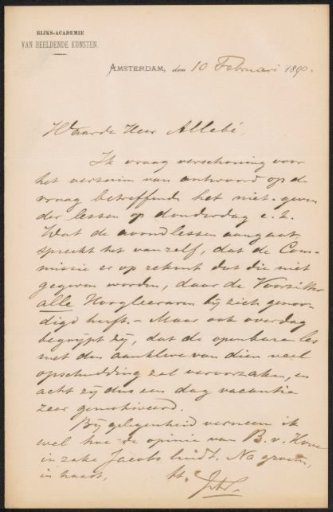 RIJKS-ACADEMIE
VAN BEELDENDE KUNSTEN.
AMSTERDAM, den 10 Februari 1890.
Waarde Heer Allebé,
Ik vraag verschoning voor
het verzuim van antwoord op de
vraag betreffende het niet-geven
der lessen op donderdag e.k.
Wat de avondlessen aangaat
spreekt het van zelf, dat de Com-
missie er op rekent dat die niet
gegeven worden, daar de Voorzitter
alle Hoogleeraren bij zich genoo-
digd heeft. - Maar ook overdag
begrijpt zij, dat de openbare les
met den aankleve van dien veel
opschudding zal veroorzaken, en
acht zij dus een dag vacantie
zeer gemotiveerd.
Bij gelegenheid verneem ik
wel hoe de opinie van B. v. Hove
in zake Jacobs luidt. Na groete,
in haast,